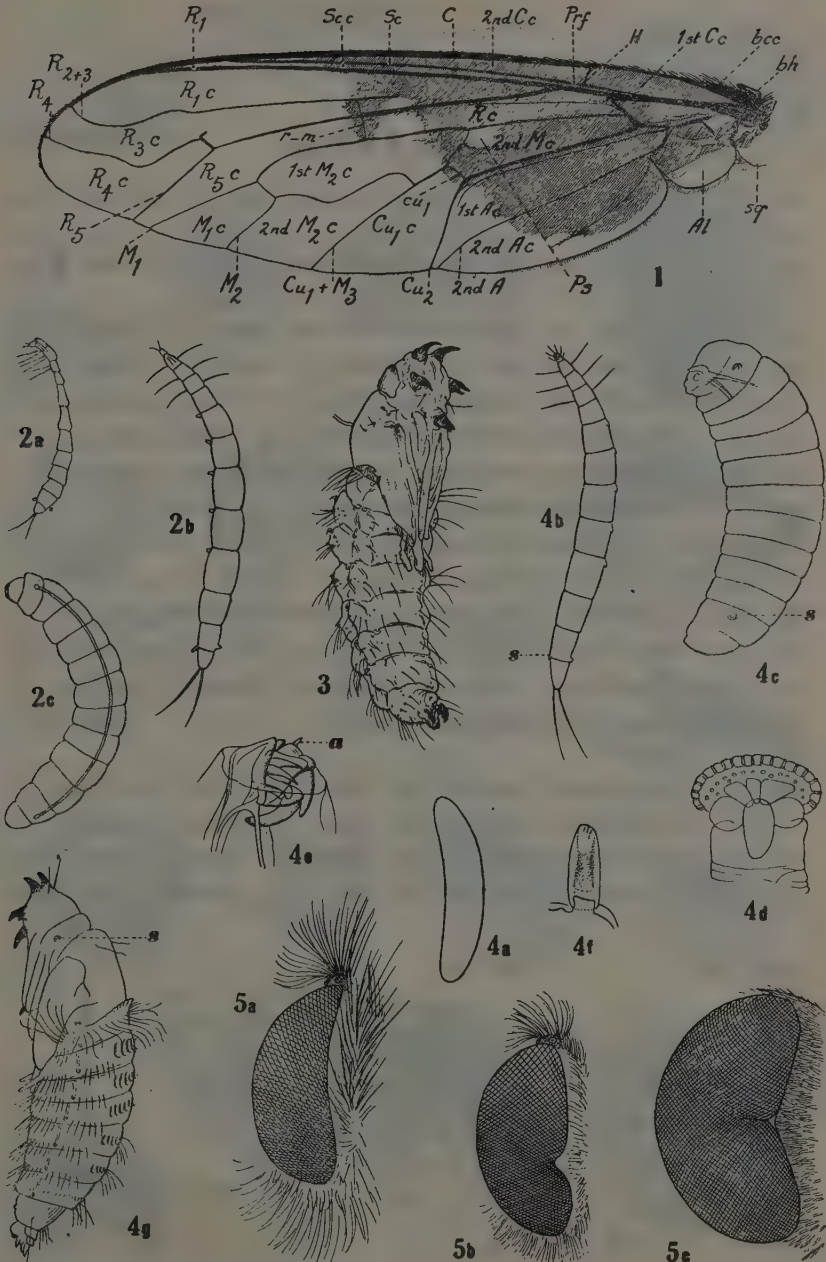 R₁ Sc c Sc C 2nd Cc Prf H 1st Cc bcc bh
R₂₊₃ R₁c
R₄ R₃c r-m Rc 2nd Mc
R₄c R₅c 1st M₂c cu₁ 1st Ac
R₅ M₁c 2nd M₂c Cu₁c 2nd Ac Al sq
M₁ M₂ Cu₁+M₃ Cu₂ 2nd A Ps 1
2a
2b
3
4b
s
4c
s
2c
a
4e
4a
4f
4d
s
4g
5a
5b
5c